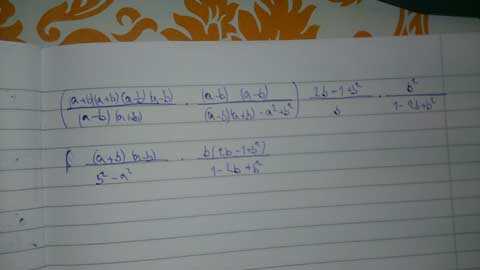 ( (a+b)(a+b)(a-b)(a-b) / (a-b)(a+b) · (a-b) (a-b) / (a-b)(a+b) - a²+b² ) 2b-1+b² / b · b² / 1-2b+b²
( (a+b)(a-b) / b²-a² · b(2b-1+b²) / 1-2b+b²